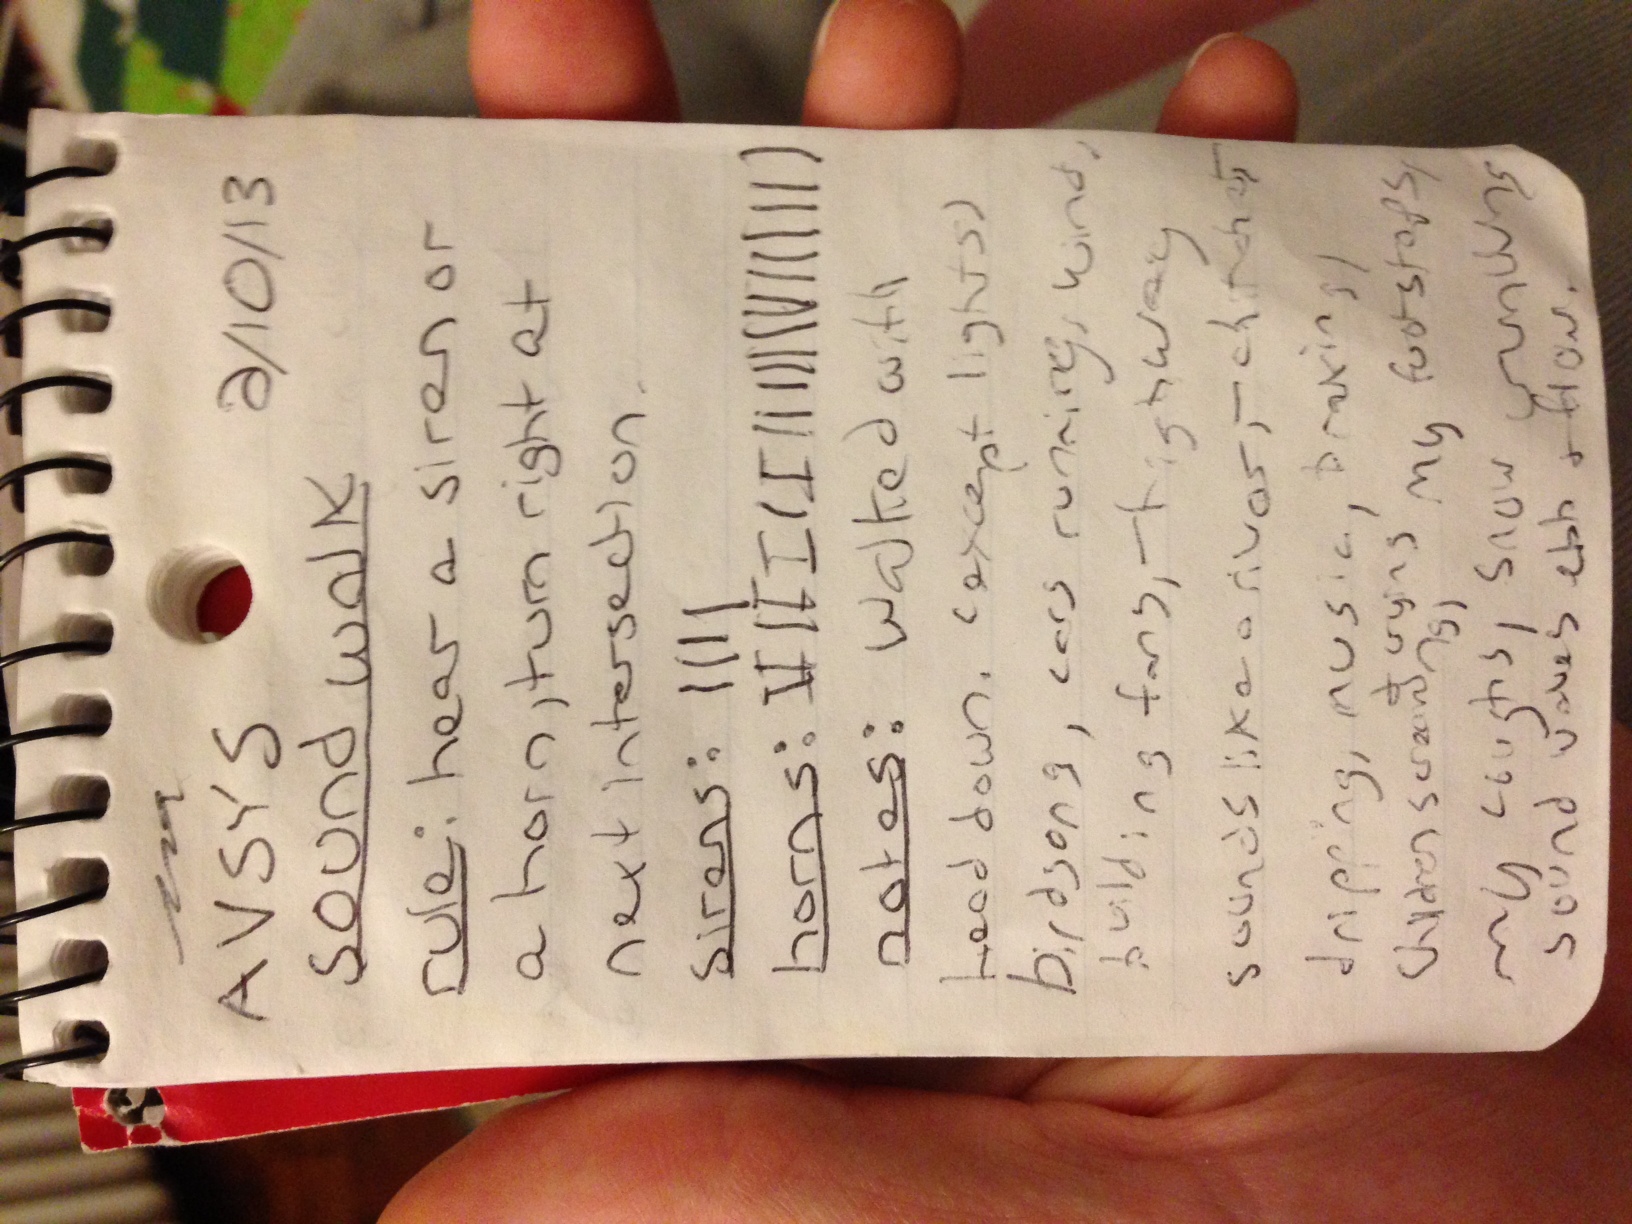 AVSYS 2/10/13
sound walk
rule: hear a siren or
a horn, turn right at
next intersection.
sirens: ||||
horns:
notes: walked with
head down. (except lights)
birdsong, cars running, wind,
building fans, - highway
sounds like a river, - chitchat,
dripping, music, braking,
children screaming, + crying my footsteps,
my coughs, snow crunching
sound waves ebb + flow.